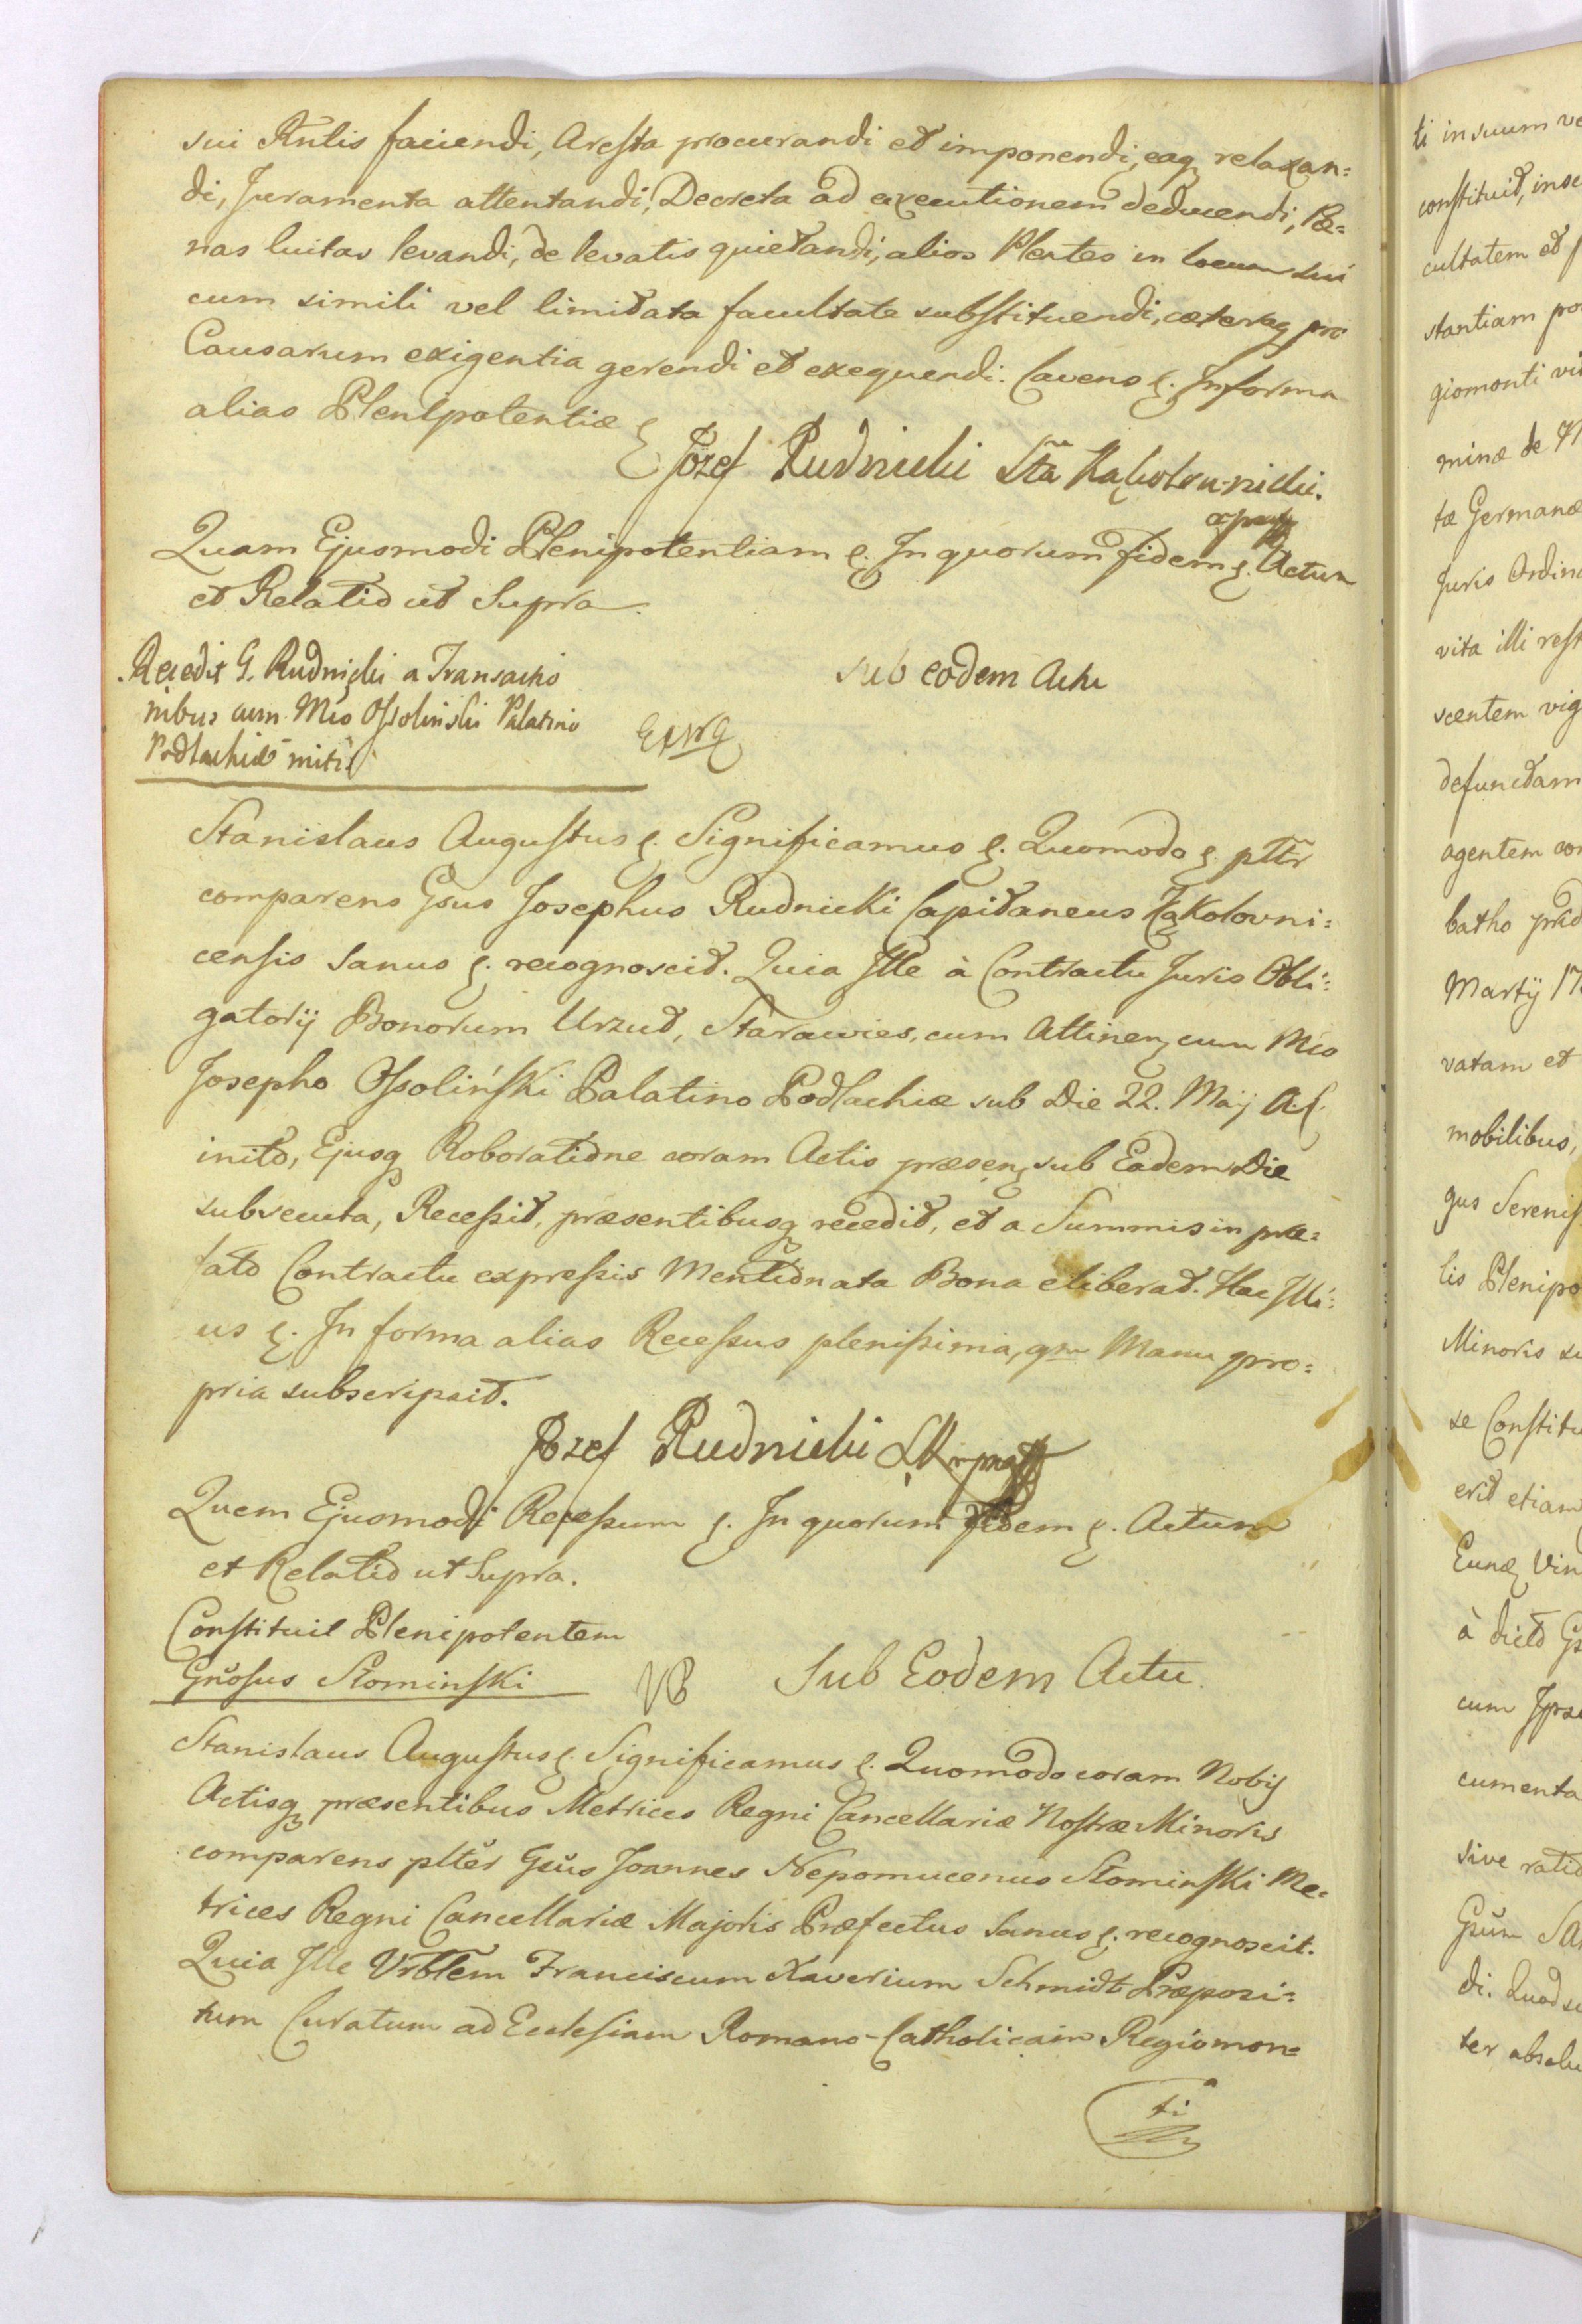 sui Rntis faciendi, Aresta procurandi et imponendi, eaq relaxan=
di, Juramenta attentandi, Decreta ad executionem deducendi, Pæ=
nas luitas levandi, de levatis quietandi, alios Plentes in locum sui
cum simili vel limitata facultate substituendi, cæteraq pro
Causarum exigentia gerendi et exequendi. Cavens &. In forma
alias Plenipotentiæ &
Jozef Rudnicki Sta
Quam Ejusmodi Plenipotentiam &. In quorum fidem &. Actum
et Relatio ut Supra.
Recedit G. Rudnicki a Transactio
nibus cum Mco Ossolinski Palatino
Podlachiæ initis
sub eodem Actu
Stanislaus Augustus &. Significamus &. Quomodo &. pltr
comparens Gsus Josephus Rudnicki Capitaneus Kąkolovni=
censis Sanus &. recognoscit. Quia Ille à Contractu Juris Obli=
gatorij Bonorum Urzut, Starawies, cum Attinen, cum Mco
Josepho Ossolinski Palatino Podlachiæ sub Die 22. Maij A. C.
inito, Ejusq Roboratione coram Actis præsen, sub Eadem Die
subsecuta, Recessit, præsentibusq recedit, et a Summis in præ=
fato Contractu expressis Mentionata Bona eliberat. Hac Illi=
us &. In forma alias Recessus plenissima, qm Manu pro=
pria subscripsit.
Jozef Rudnicki
Quem Ejusmodi Recessum &. In quorum fidem &. Actum
et Relatio ut Supra.
Constituit Plenipotentem
Gnosus Słominski
Sub Eodem Actu.
Stanislaus Augustus &. Significamus &. Quomodo coram Nobis
Actisq præsentibus Metrices Regni Cancellariæ Nostræ Minoris
comparens plter Gsus Joannes Nepomucenus Słominski Me=
trices Regni Cancellariæ Majoris Præfectus Sanus &. recognoscit.
Quia Ille Vrblem Franciscum Xaverium Schmidt Præposi=
tum Curatum ad Ecclesiam Romano-Catholicam Regiomon=
ti
ti in suum
constituit,
cultatem et
stantiam
giomonti
minæ de
tæ Germanæ
Juris
vita illi
scentem
defunctam
agentem
batho
Martij
vatam et
mobilibus,
gus
lis
Minoris
se
erit etiam
à dicto
cum
cumenta
sive
Gsum
di. Quod
ter